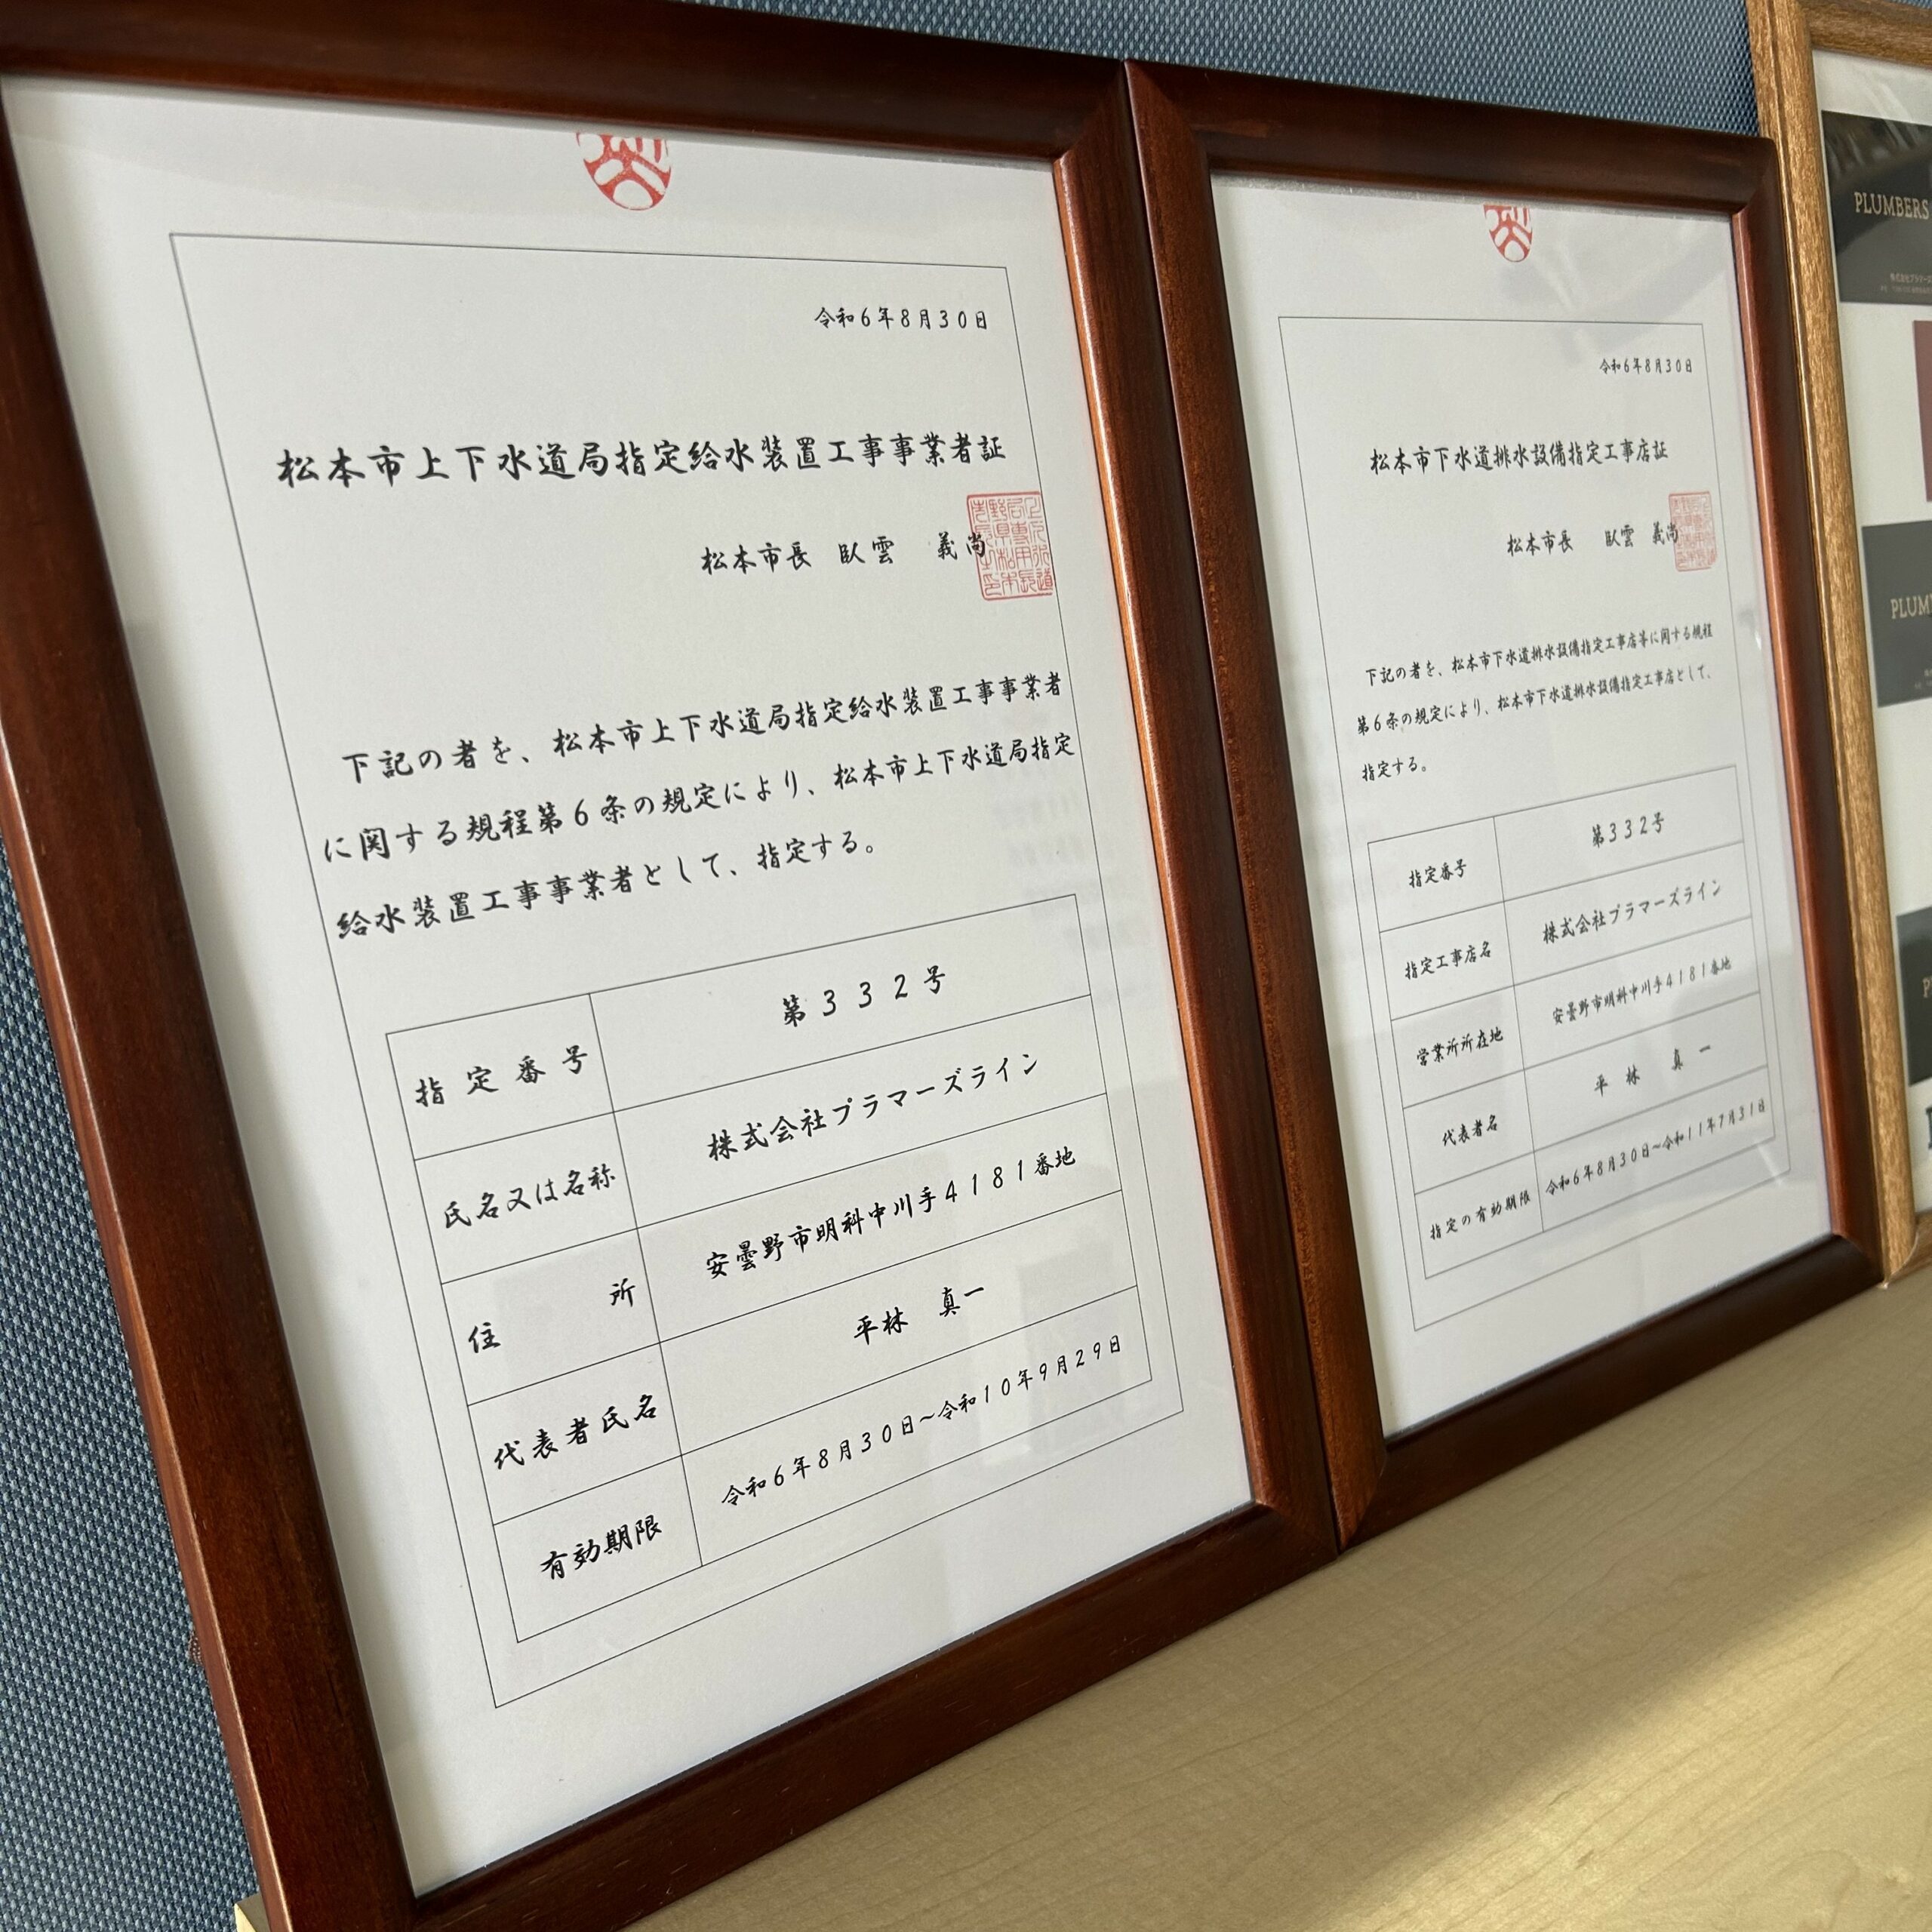 令和6年8月30日
松本市上下水道局指定給水装置工事事業者証
松本市長 臥雲 義尚
下記の者を、松本市上下水道局指定給水装置工事事業者
に関する規程第6条の規定により、松本市上下水道局指定
給水装置工事事業者として、指定する。
指定番号 第332号
氏名又は名称 株式会社プラマーズライン
住所 安曇野市明科中川手4181番地
代表者氏名 平林 真一
有効期限 令和6年8月30日~令和10年9月29日
令和6年8月30日
松本市下水道排水設備指定工事店証
松本市長 臥雲 義尚
下記の者を、松本市下水道排水設備指定工事店等に関する規程
第6条の規定により、松本市下水道排水設備指定工事店として、
指定する。
指定番号 第332号
指定工事店名 株式会社プラマーズライン
営業所所在地 安曇野市明科中川手4181番地
代表者名 平林 真一
指定の有効期限 令和6年8月30日~令和11年7月31日
PLUMBERS